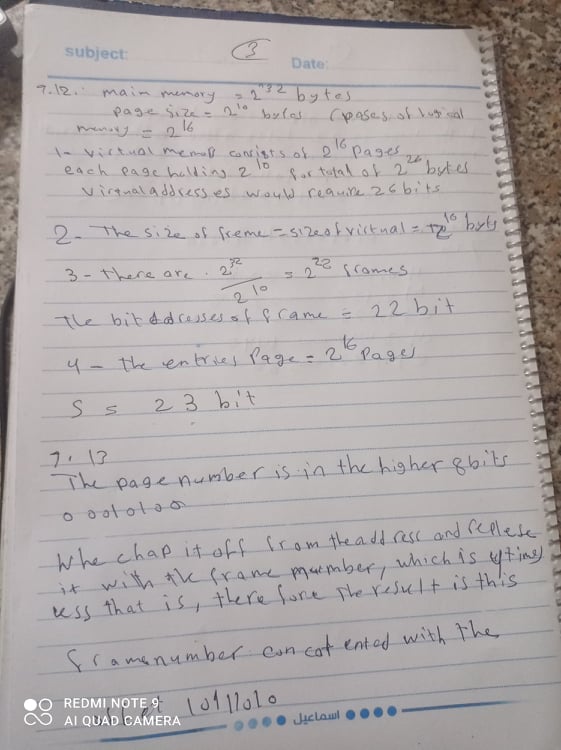 subject:
3
Date:
7.12.: main memory = 2^32 bytes
page size = 2^10 bytes (pases of logical
memory = 2^16
1- virtual memory consists of 2^16 pages
each page holding 2^10 for total of 2^26 bytes
Virtual addresses would require 26 bits
2- The size of freme = size of virtual = 2^10 byts
3- there are . 2^32 / 2^10 = 2^22 frames
The bit Addresses of frame = 22 bit
4 - the entries Page = 2^16 pages
5 = 23 bit
7.13
The page number is in the higher 8 bits
00010100
Whe chap it off from the address and replese
it with the frame number, which is 4 times
less that is, therefore the result is this
frame number concatented with the
offset 10111010
REDMI NOTE 9
AI QUAD CAMERA
اسماعيل